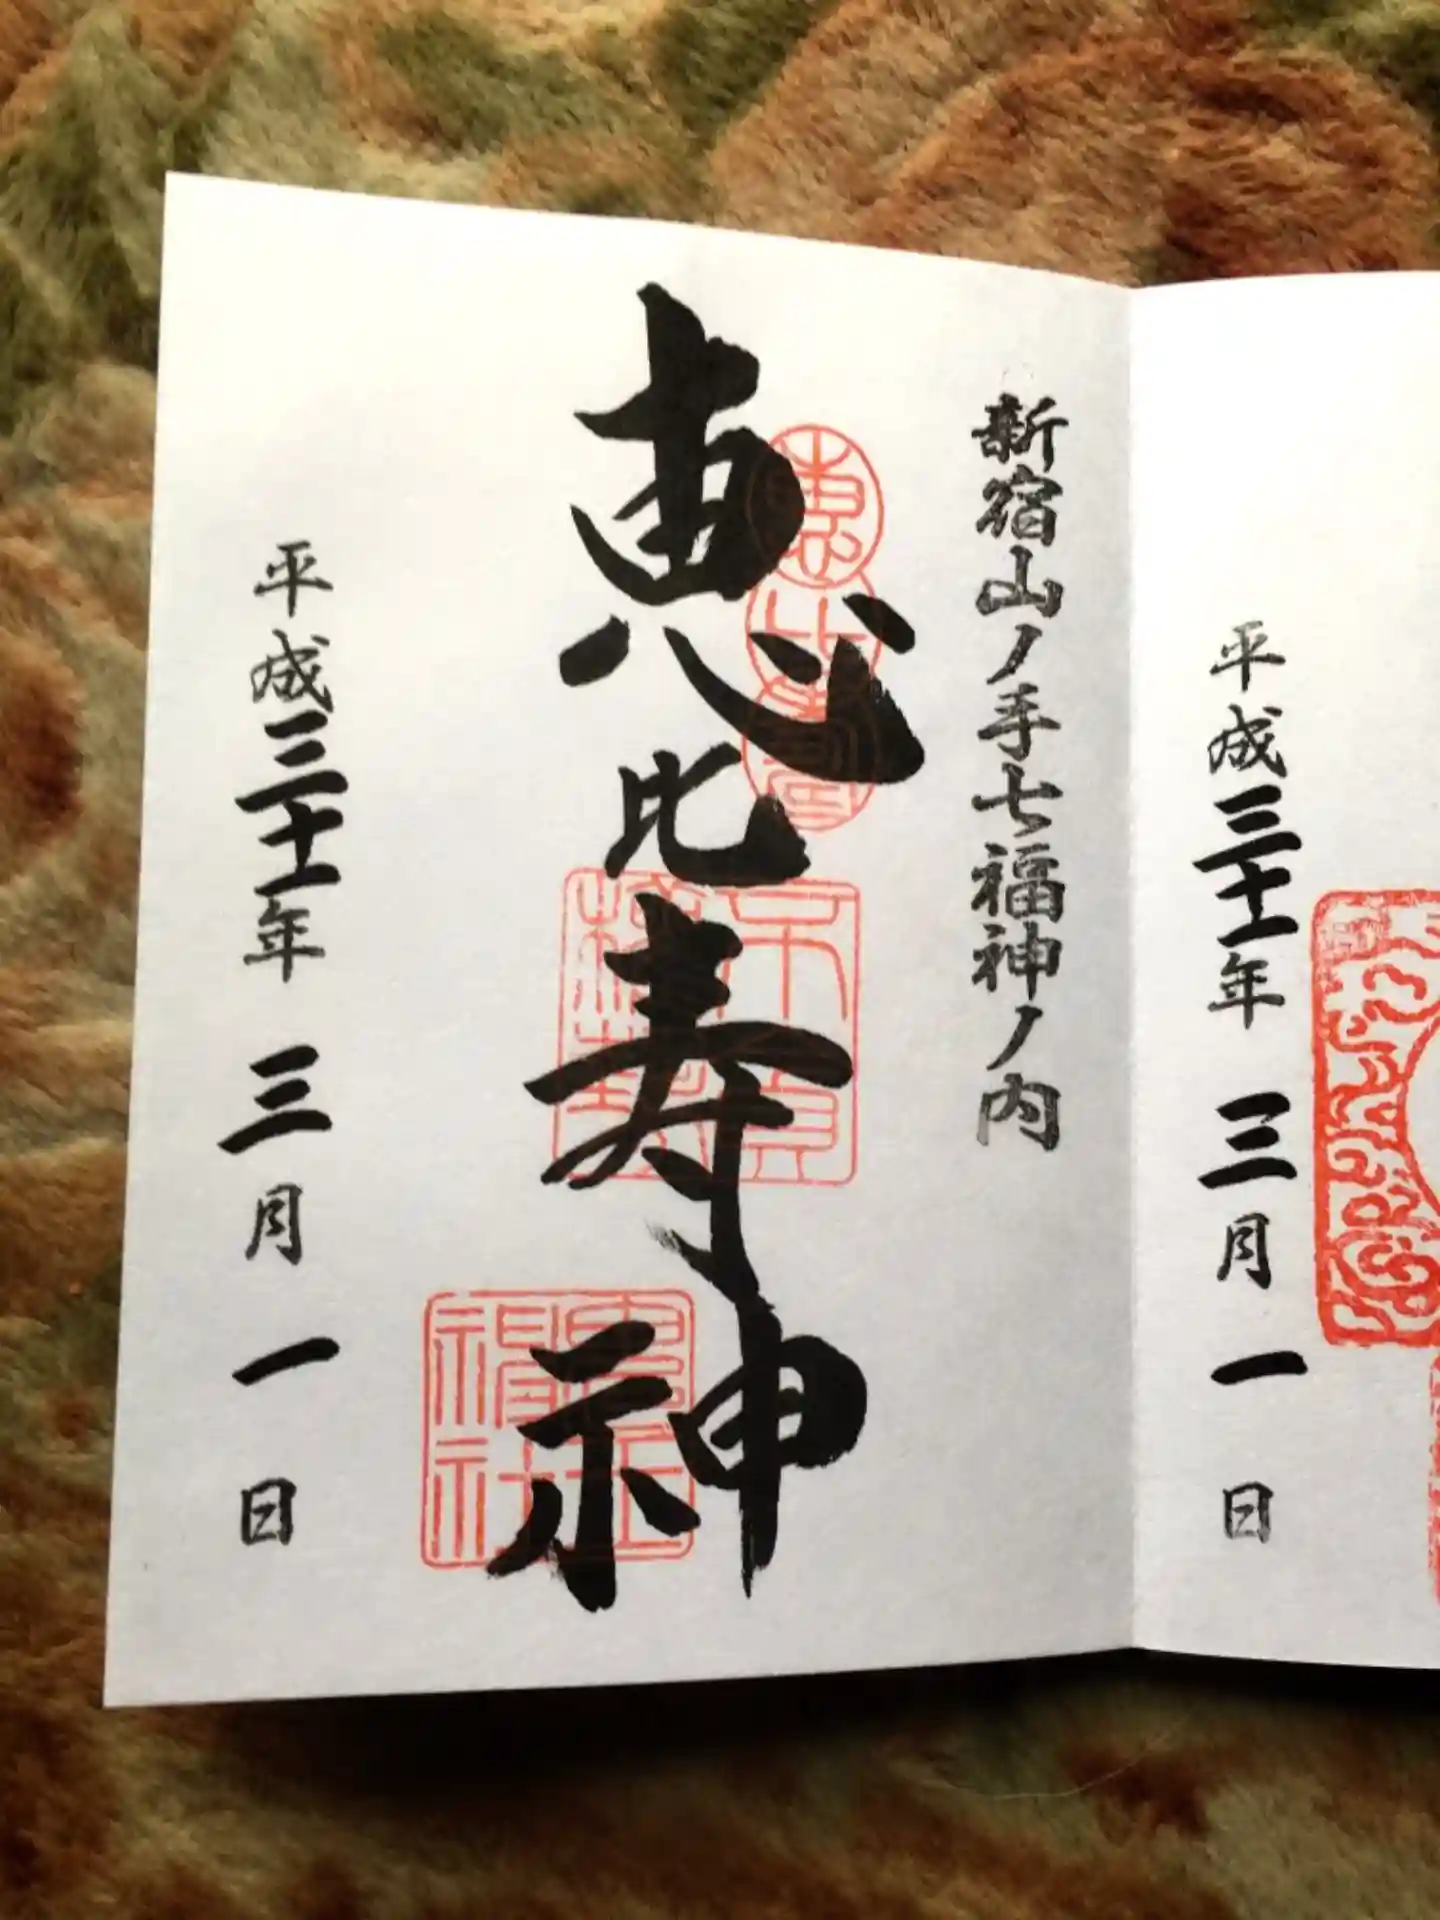 平成三十一年 三月 一日
新宿山ノ手七福神ノ内
恵比寿神
平成三十一年 三月 一日